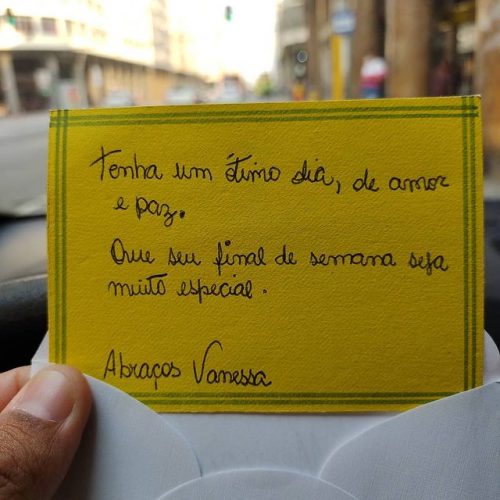 Tenha um ótimo dia, de amor
e paz.
Que seu final de semana seja
muito especial.
Abraços Vanessa